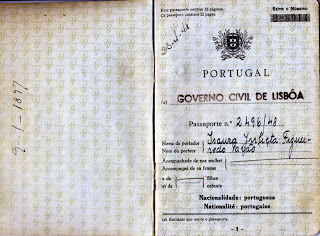 2-1-1897
Este passaporte contém 32 páginas.
Ce passeport contient 32 pages.
Série e Número
PORTUGAL
(a) GOVERNO CIVIL DE LISBÔA
Passaporte n.º 2496/48
Nome do portador Isaura
Nom du porteur
Acompanhado de sua mulher
Accompagné de sa femme
e de filhos
et de enfants
Nacionalidade: portuguesa
Nationalité: portugaise
(a) Entidade que emite o passaporte.
- 1 -